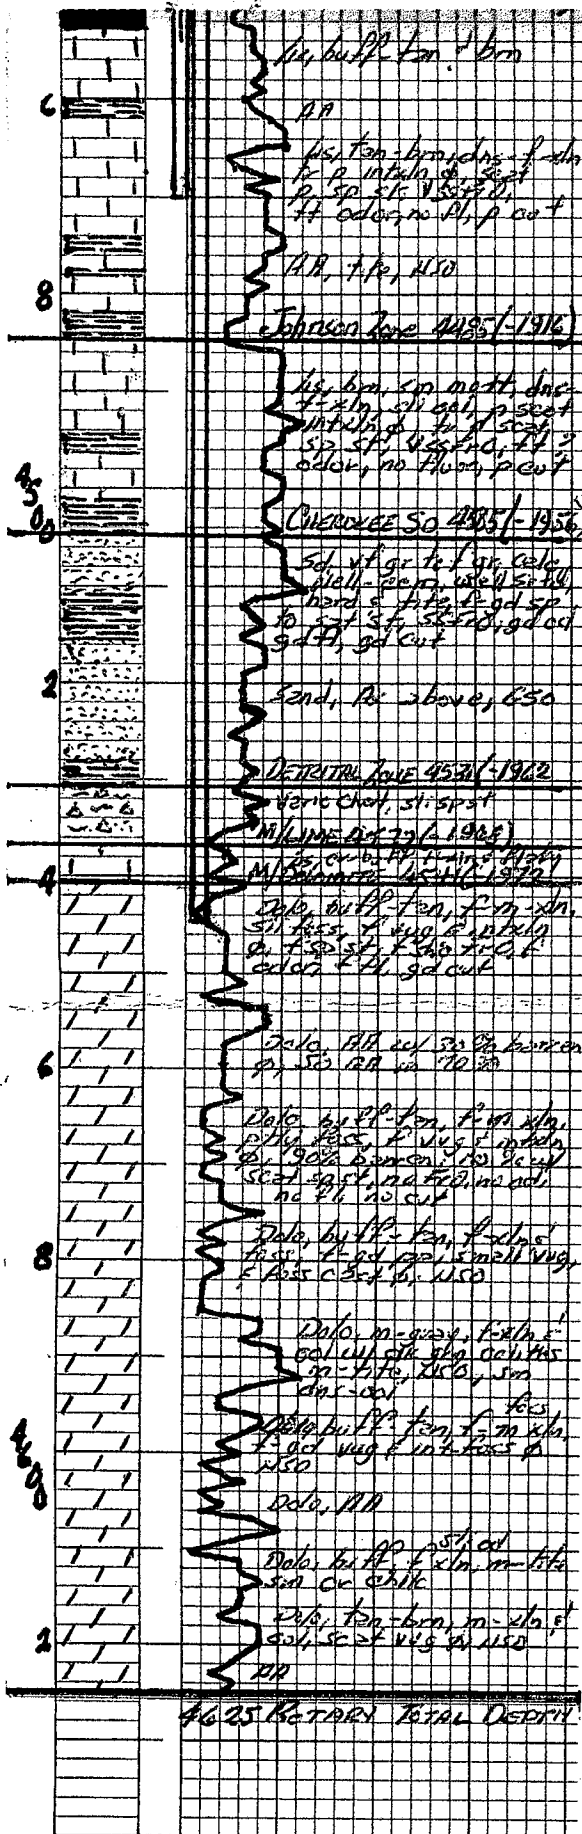 ls, buff-tan & brn
6
AA
ls, tan-brn, dns-f-xln
fr p intxln ϕ, scat
p. sp st, VSSFrO,
ft odor, no fl, p cut
AA, tite, NSO
8
Johnson Zone 4485 (-1916)
ls, brn, sm mott, dns-
f-xln, sli ool, p scat
intxln ϕ, tr p scat
sp st, VSSFrO, ft ?
odor, no fluor, p cut
4500
CHEROKEE SD 4505 (-1936)
Sd, vf gr to f gr, calc
well-cem, well srtd,
hard & tite, f-gd sp
to sat st, SSFrO, gd od
gd fl, gd cut
2
Sand, As above, GSO
DETRITAL ZONE 4531 (-1962
Varic Chert, sli sp st
M/LIME
4
M/DOLOMITE 4541 (-1972
Dolo, buff-tan, f-m-xln,
sli foss, f vug & intxln
ϕ, f sp st, f sho FrO, f
odor, f fl, gd cut
6
Dolo, AA w/ 30% barren
ϕ, SO AA in 70%
Dolo, buff-tan, f-m xln,
ptly foss, f vug & intxln
ϕ, 90% barren, 10% w/
scat sp st, no FrO, no od,
no fl, no cut
8
Dolo, buff-tan, f-xln &
foss, f-gd pp, small vug,
& foss cast ϕ, NSO
Dolo, m-gray, f-xln &
ool w/ drk grn oolites
m-tite, NSO, sm
dns-ool
foss
4600
Dolo, buff-tan, f-m xln,
f-gd vug & int-foss ϕ
NSO
Dolo, AA
sli ool
Dolo, buff, f xln, m-tite
sm cr chlk
2
Dolo, tan-brn, m-xln &
ool, scat vug ϕ, NSO
AA
4625 ROTARY TOTAL DEPTH